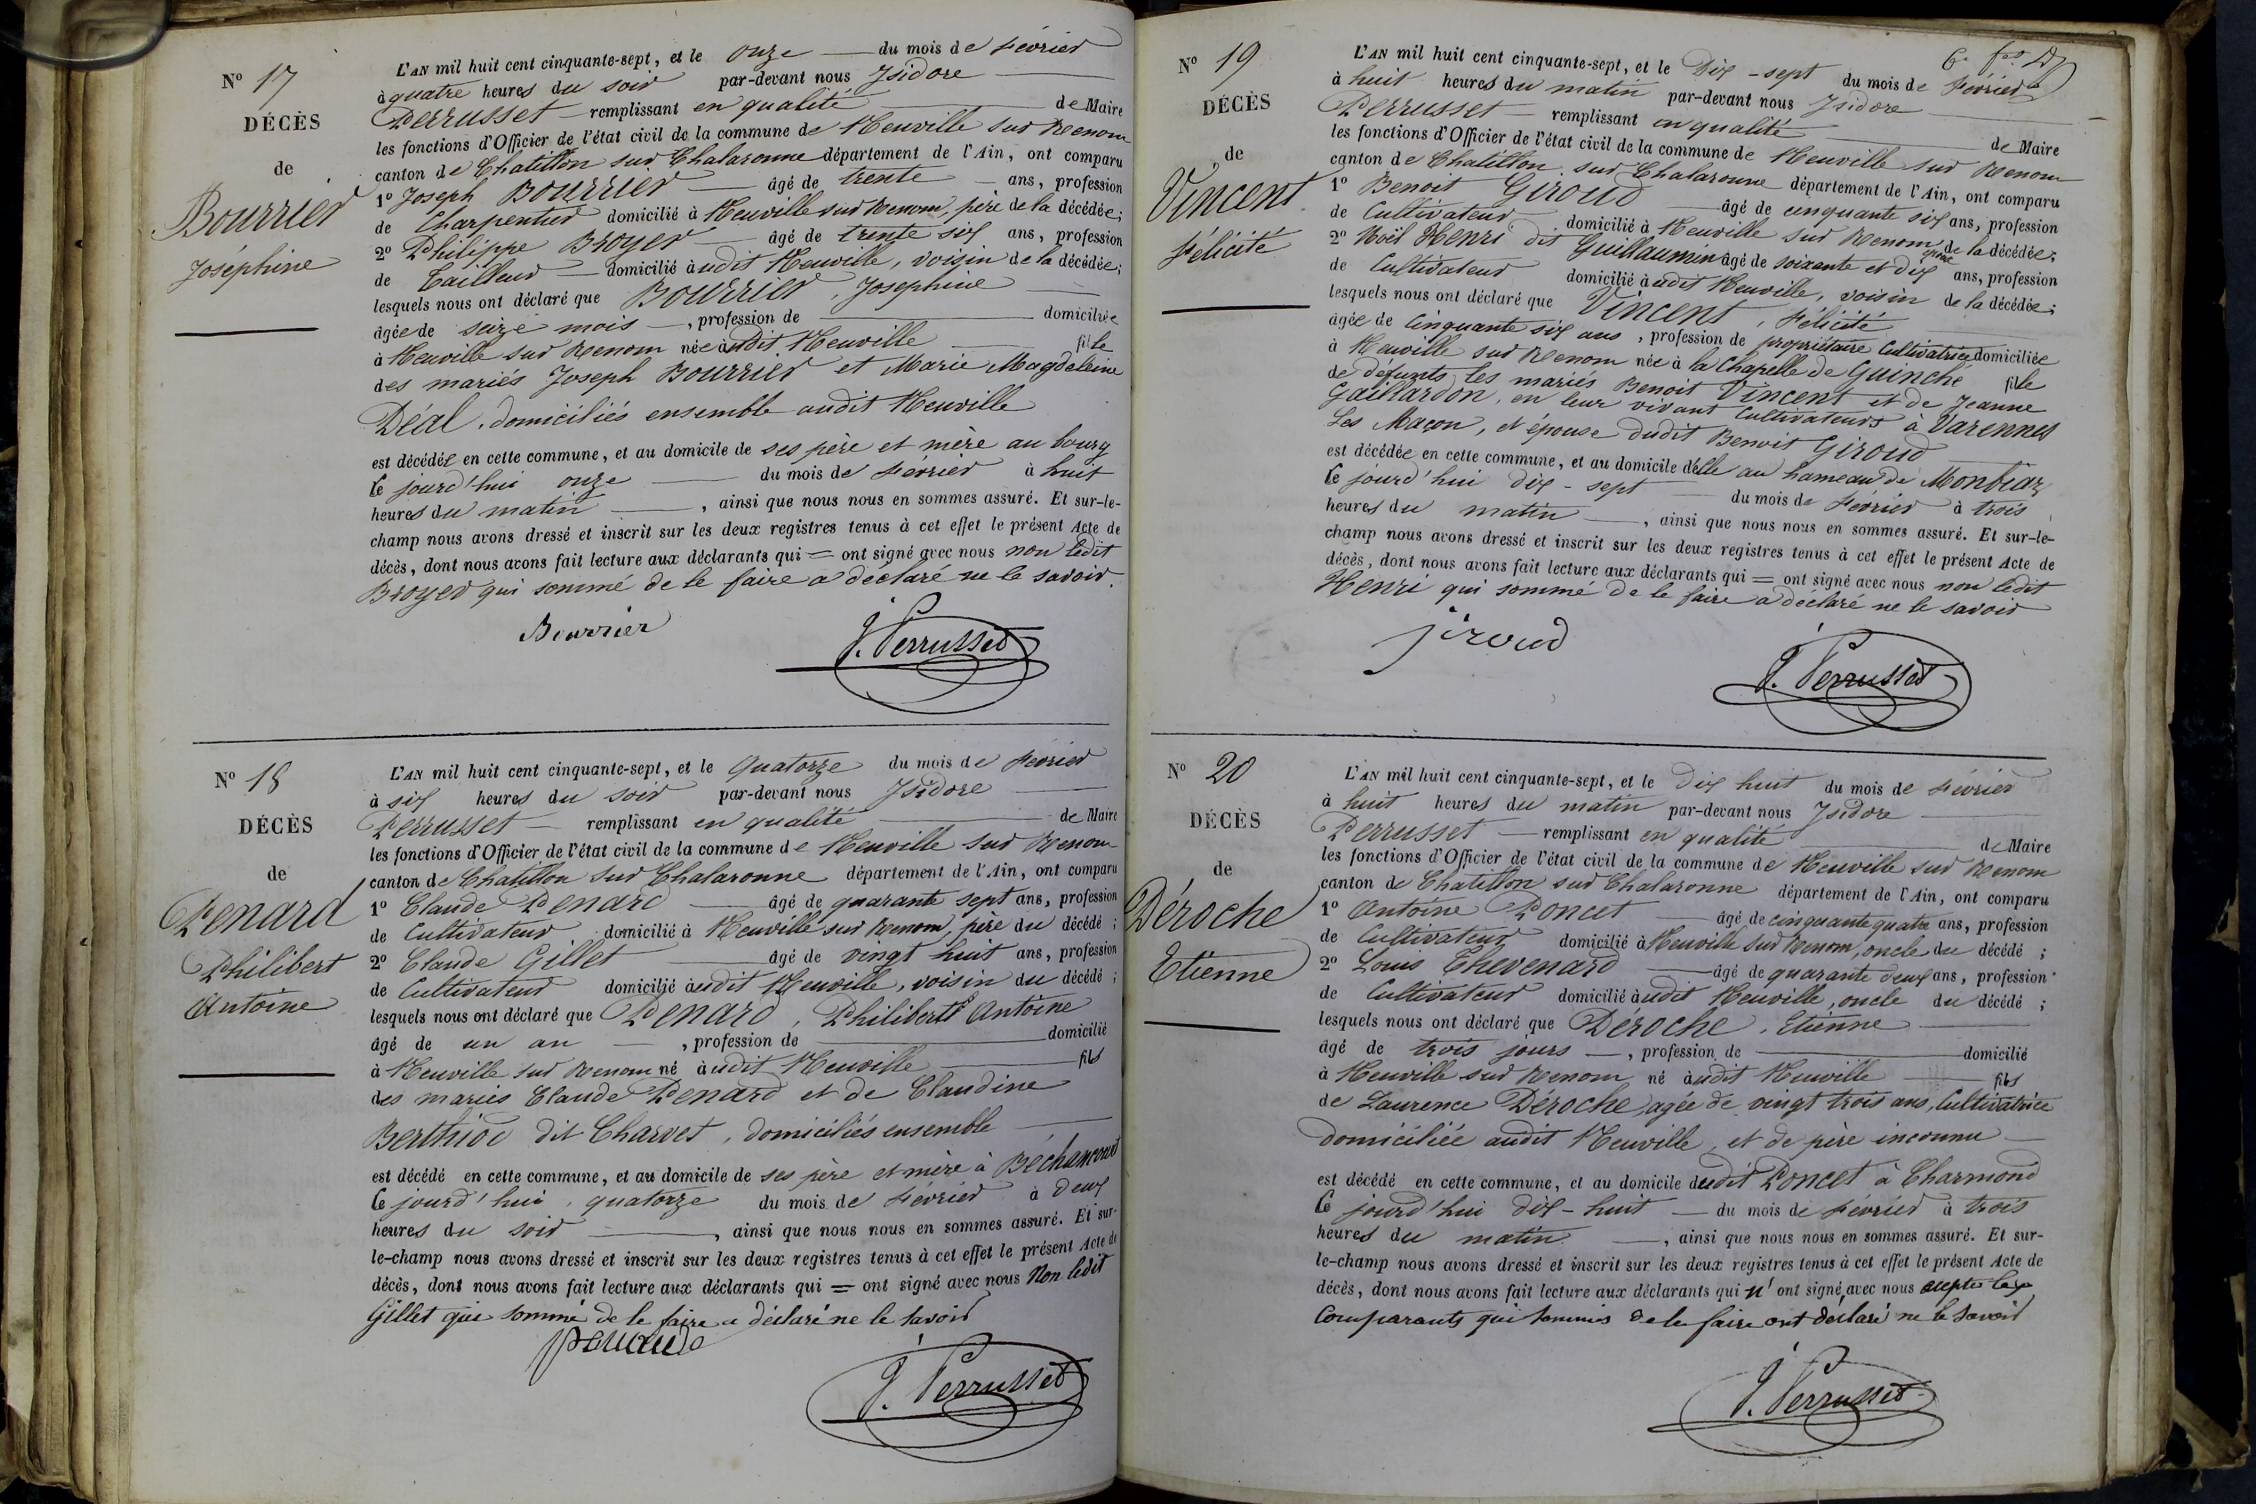 N° 17
DÉCÈS
de
Bourrier
Joséphine
L'AN mil huit cent cinquante-sept, et le onze du mois de février
à quatre heures du soir par-devant nous Isidore
Perrusset remplissant en qualité de Maire
les fonctions d'Officier de l'état civil de la commune de Neuville sur Renom
canton de Chatillon sur Chalaronne département de l'Ain, ont comparu
1° Joseph Bourrier âgé de trente ans, profession
de Charpentier domicilié à Neuville sur Renom, père de la décédée;
2° Philippe Broyer âgé de trente six ans, profession
de Tailleur domicilié audit Neuville, voisin de la décédée;
lesquels nous ont déclaré que Bourrier, Josephine
âgée de seize mois, profession de domiciliée
à Neuville sur Renom née audit Neuville fille
des mariés Joseph Bourrier et Marie Magdeleine
Déal, domiciliés ensemble audit Neuville
est décédée en cette commune, et au domicile de ses père et mère au bourg
le jourd'hui onze du mois de février à huit
heures du matin, ainsi que nous nous en sommes assuré. Et sur-le-
champ nous avons dressé et inscrit sur les deux registres tenus à cet effet le présent Acte de
décès, dont nous avons fait lecture aux déclarants qui = ont signé avec nous non ledit
Broyer qui sommé de le faire a déclaré ne le savoir.
Bourrier
J. Perrusset
N° 18
DÉCÈS
de
Penard
Philibert
Antoine
L'AN mil huit cent cinquante-sept, et le Quatorze du mois de février
à six heures du soir par-devant nous Isidore
Perrusset remplissant en qualité de Maire
les fonctions d'Officier de l'état civil de la commune de Neuville sur Renom
canton de Chatillon sur Chalaronne département de l'Ain, ont comparu
1° Claude Penard âgé de quarante sept ans, profession
de Cultivateur domicilié à Neuville sur Renom, père du décédé;
2° Claude Gillet âgé de vingt huit ans, profession
de Cultivateur domicilié audit Neuville, voisin du décédé;
lesquels nous ont déclaré que Penard, Philibert Antoine
âgé de un an, profession de domicilié
à Neuville sur Renom né audit Neuville fils
des mariés Claude Penard et de Claudine
Berthiod dit Charvet, domiciliés ensemble
est décédé en cette commune, et au domicile de ses père et mère à
le jourd'hui, quatorze du mois de février à deux
heures du soir, ainsi que nous nous en sommes assuré. Et sur-
le-champ nous avons dressé et inscrit sur les deux registres tenus à cet effet le présent Acte de
décès, dont nous avons fait lecture aux déclarants qui = ont signé avec nous Non ledit
Gillet qui sommé de le faire a déclaré ne le savoir
J. Perrusset
N° 19
DÉCÈS
de
Vincent
Félicité
L'AN mil huit cent cinquante-sept, et le Dix-sept du mois de février
à huit heures du matin par-devant nous Isidore
Perrusset remplissant en qualité de Maire
les fonctions d'Officier de l'état civil de la commune de Neuville sur Renom
canton de Chatillon sur Chalaronne département de l'Ain, ont comparu
1° Benoit Giroud âgé de cinquante six ans, profession
de Cultivateur domicilié à Neuville sur Renom époux de la décédée;
2° Noël Henri dit Guillaumin âgé de soixante et dix ans, profession
de Cultivateur domicilié audit Neuville, voisin de la décédée;
lesquels nous ont déclaré que Vincent, Félicité
âgée de cinquante six ans, profession de propriétaire Cultivatrice domiciliée
à Neuville sur Renom née à la Chapelle de Guinché fille
de défunts les mariés Benoit Vincent et de Jeanne
Gaillardon, en leur vivant Cultivateurs à Varennes
Les Maçon, et épouse dudit Benoit Giroud
est décédée en cette commune, et au domicile d'elle au hameau de Monbiaz
le jourd'hui dix-sept du mois de février à trois
heures du matin, ainsi que nous nous en sommes assuré. Et sur-le-
champ nous avons dressé et inscrit sur les deux registres tenus à cet effet le présent Acte de
décès, dont nous avons fait lecture aux déclarants qui = ont signé avec nous non ledit
Henri qui sommé de le faire a déclaré ne le savoir
Giroud
J. Perrusset
N° 20
DÉCÈS
de
Déroche
Etienne
L'AN mil huit cent cinquante-sept, et le dix huit du mois de février
à huit heures du matin par-devant nous Isidore
Perrusset remplissant en qualité de Maire
les fonctions d'Officier de l'état civil de la commune de Neuville sur Renom
canton de Chatillon sur Chalaronne département de l'Ain, ont comparu
1° Antoine Poncet âgé de cinquante quatre ans, profession
de Cultivateur domicilié à Neuville sur Renom, oncle du décédé;
2° Louis Thevenard âgé de quarante deux ans, profession
de Cultivateur domicilié audit Neuville, oncle du décédé;
lesquels nous ont déclaré que Déroche, Etienne
âgé de trois jours, profession de domicilié
à Neuville sur Renom né audit Neuville fils
de Laurence Déroche, agée de vingt trois ans, Cultivatrice
domiciliée audit Neuville, et de père inconnu
est décédé en cette commune, et au domicile dudit Poncet à Charmond
le jourd'hui dix-huit du mois de février à trois
heures du matin, ainsi que nous nous en sommes assuré. Et sur-
le-champ nous avons dressé et inscrit sur les deux registres tenus à cet effet le présent Acte de
décès, dont nous avons fait lecture aux déclarants qui n'ont signé avec nous
Comparants qui sommés de le faire ont déclaré ne le savoir
J. Perrusset